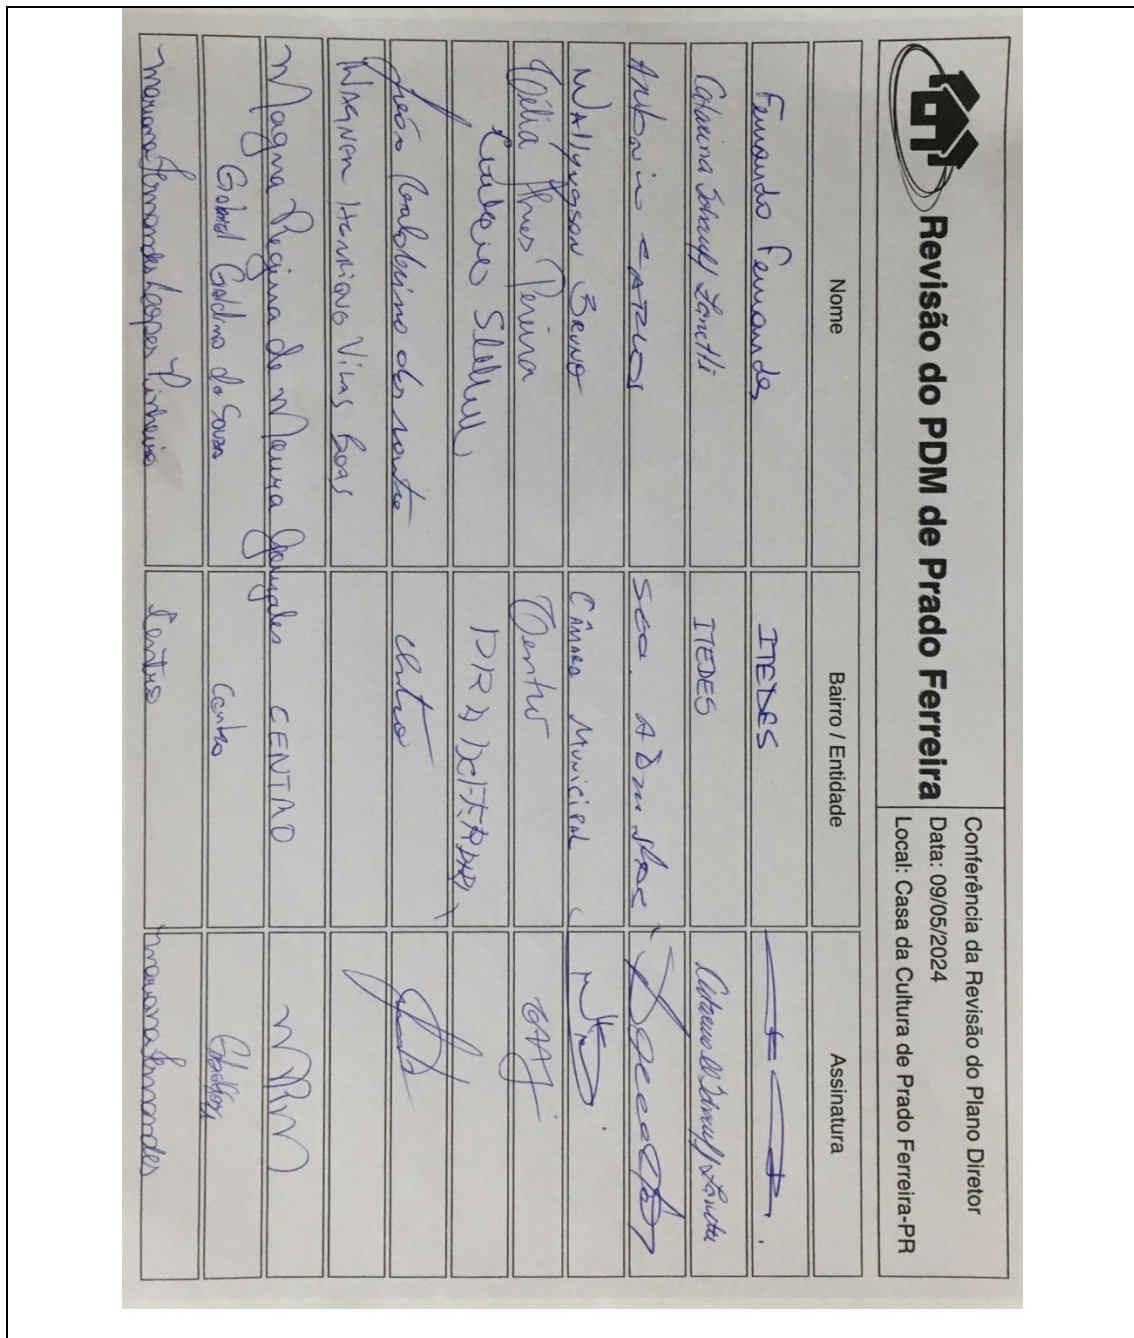 Revisão do PDM de Prado Ferreira
Conferência da Revisão do Plano Diretor
Data: 09/05/2024
Local: Casa da Cultura de Prado Ferreira-PR
Nome Bairro / Entidade Assinatura
Fernando Fernandes ITEDES
Catarina Schauff Zanetti ITEDES
Antonio CARLOS
Wallyngson Bruno CÂMARA Municipal
Pereira Centro
João dos Santos centro
WAGNER Henrique Vilas Boas
Magna Regina de Moura Gonzales CENTRO MRM
Gabriel Galdino de Souza Centro
Mariana Fernandes Lopes Pinheiro Centro Mariana Fernandes